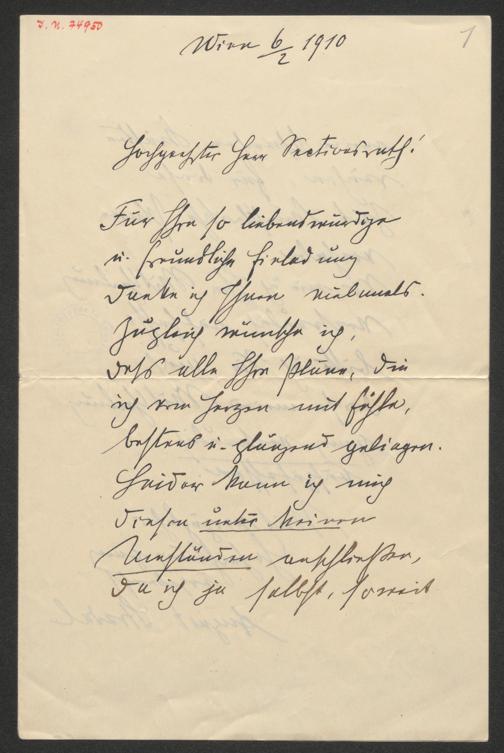 J. N. 74950
1
Wien 6/2 1910
Hochgeehrter Herr Sectionsrath!
Für Ihre so liebenswürdige
u. freundliche Einladung
danke ich Ihnen vielmals.
Zugleich wünsche ich,
dass alle Ihre Pläne, die
ich vom Herzen mit fühle,
bestens u. glänzend gelingen.
Leider kann ich mich
diesen unter keinen
Umständen anschließen,
da ich ja selbst, soweit